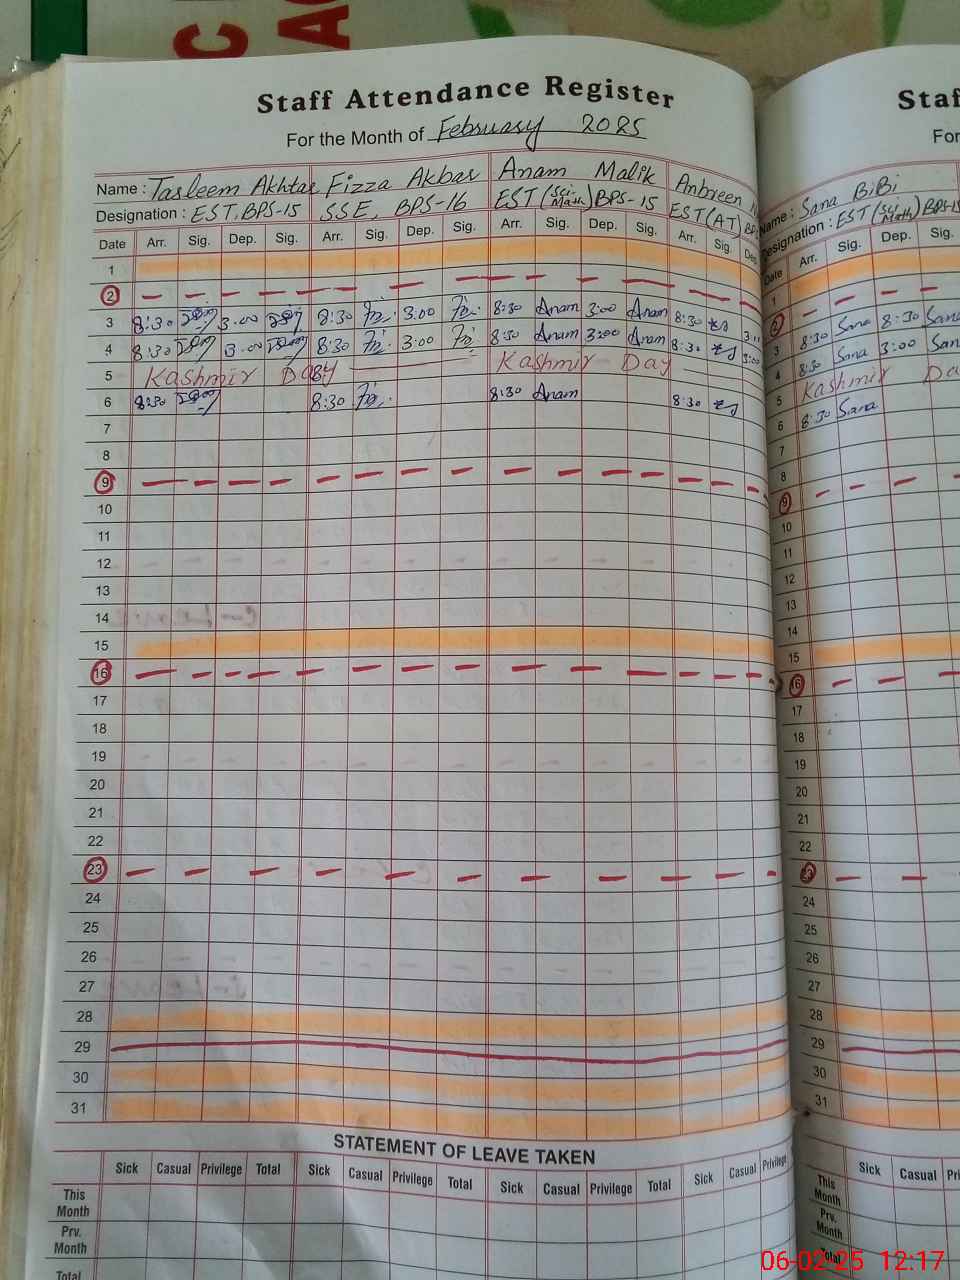 C
AC
Staff Attendance Register
For the Month of February 2025
Name : Tasleem Akhtar Fizza Akbar Anam Malik Anbreen
Designation : EST, BPS-15 SSE, BPS-16 EST (Sci-Math) BPS-15 EST (AT)
Date Arr. Sig. Dep. Sig. Arr. Sig. Dep. Sig. Arr. Sig. Dep. Sig. Arr. Sig. Dep
1
2
3 8:30 3:00 8:30 3:00 8:30 Anam 3:00 Anam 8:30
4 8:30 3:00 8:30 3:00 8:30 Anam 3:00 Anam 8:30 3:00
5 Kashmir Day Kashmir Day
6 8:30 8:30 8:30 Anam 8:30
7
8
9
10
11
12
13
14
15
16
17
18
19
20
21
22
23
24
25
26
27
28
29
30
31
STATEMENT OF LEAVE TAKEN
Sick Casual Privilege Total Sick Casual Privilege Total Sick Casual Privilege Total Sick Casual Privilege
This Month
Prv. Month
Total
Staf
For
Name : Sana BiBi
Designation : EST (Sci-Math) BPS-15
Date Arr. Sig. Dep. Sig.
1
2
3 8:30 Sana 8:30 Sana
4 8:30 Sana 3:00 San
5 Kashmir Da
6 8:30 Sana
7
8
9
10
11
12
13
14
15
16
17
18
19
20
21
22
23
24
25
26
27
28
29
30
31
Sick Casual Pri
This Month
Prv. Month
Total
06-02-25 12:17